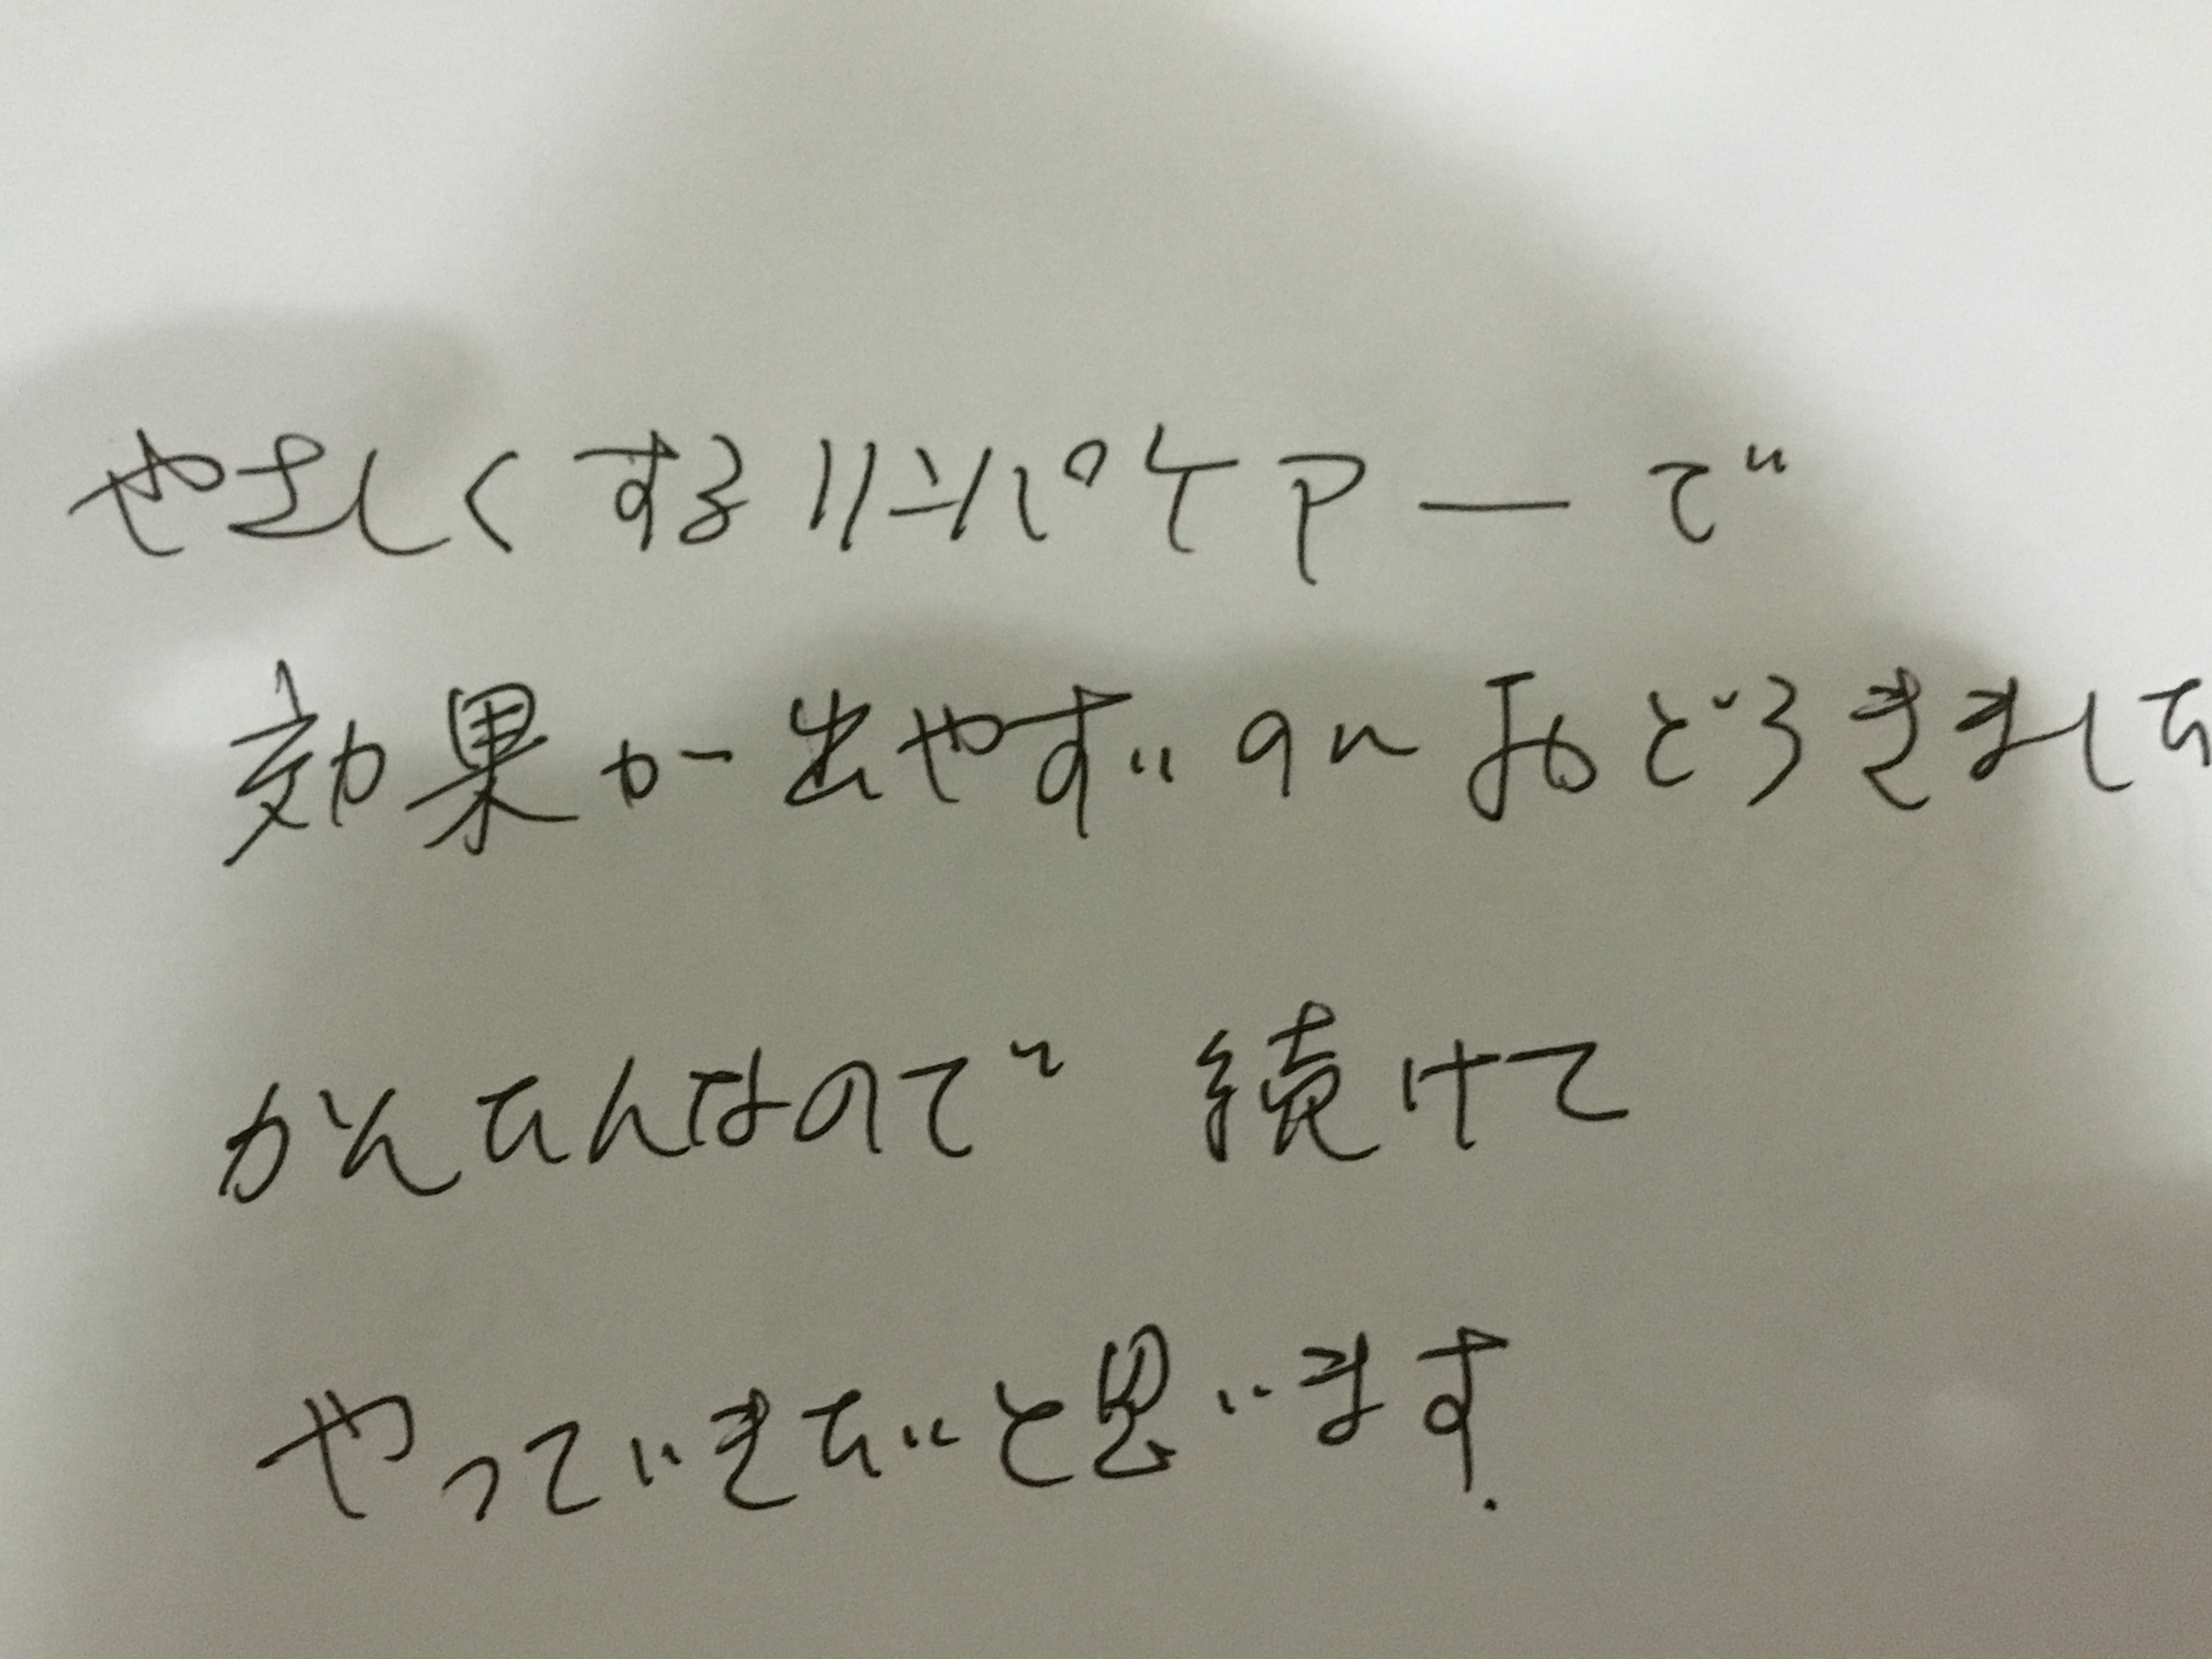 やさしくするリンパケアーで
効果が出やすいのにおどろきました
かんたんなので 続けて
やっていきたいと思います.